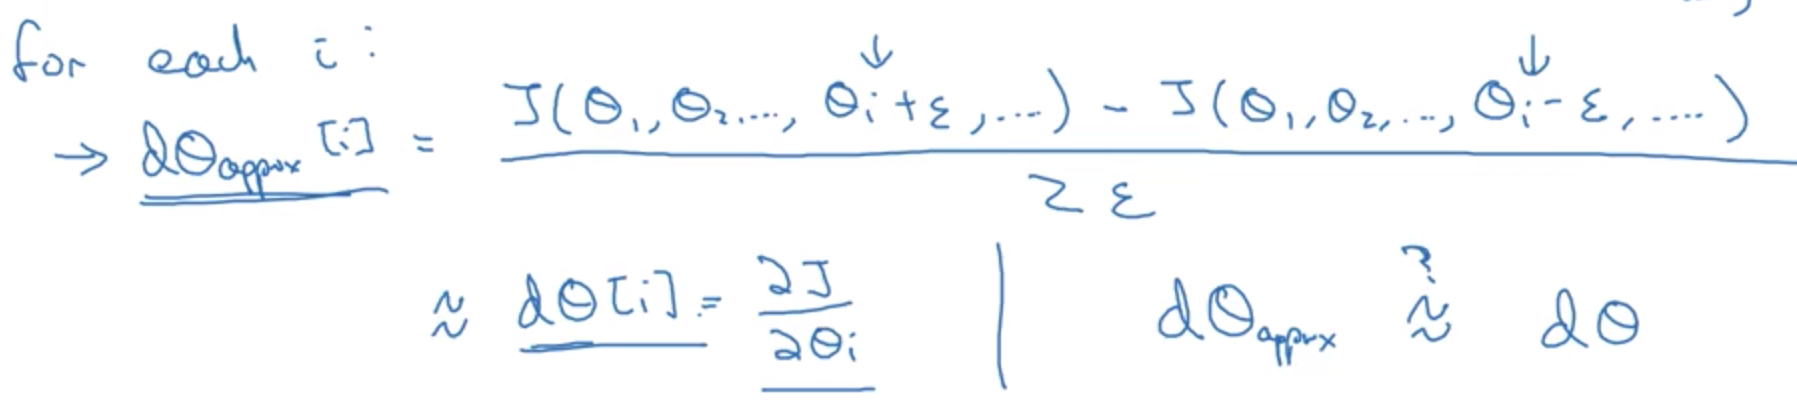 for each i:
→ dθapprox[i] = J(θ₁, θ₂, ..., θᵢ+ε, ...) - J(θ₁, θ₂, ..., θᵢ-ε, ....)
2ε
≈ dθ[i] = ∂J/∂θᵢ | dθapprox ≈? dθ